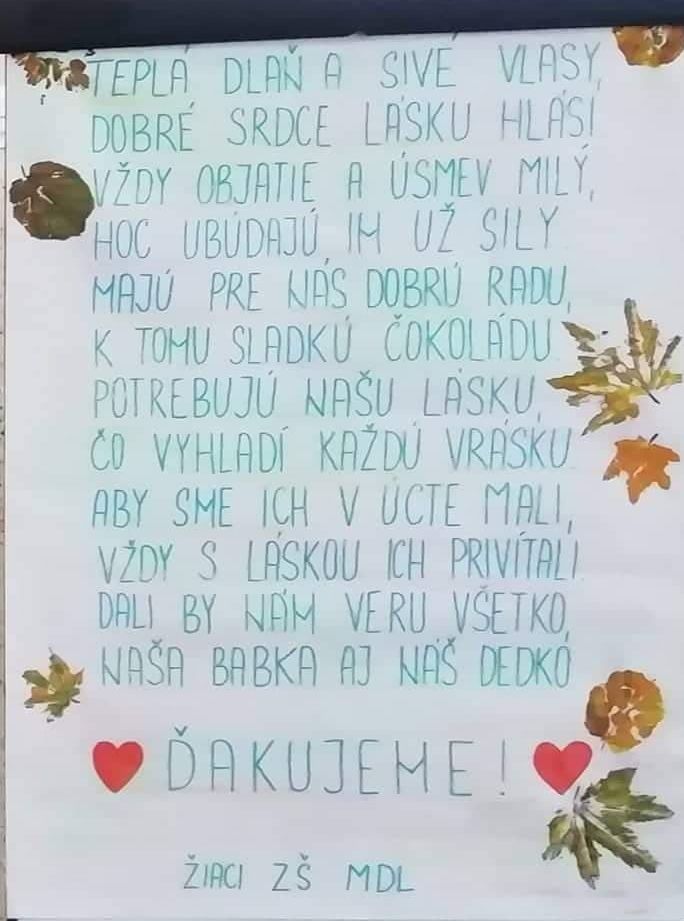 TEPLÁ DLAŇ A SIVÉ VLASY,
DOBRÉ SRDCE LÁSKU HLÁSÍ
VŽDY OBJATIE A ÚSMEV MILÝ,
HOC UBÚDAJÚ IM UŽ SILY.
MAJÚ PRE NÁS DOBRÚ RADU,
K TOMU SLADKÚ ČOKOLÁDU.
POTREBUJÚ NAŠU LÁSKU,
ČO VYHLADÍ KAŽDÚ VRÁSKU.
ABY SME ICH V ÚCTE MALI,
VŽDY S LÁSKOU ICH PRIVÍTALI.
DALI BY NÁM VERU VŠETKO,
NAŠA BABKA AJ NÁŠ DEDKO
ĎAKUJEME!
ŽIACI ZŠ MDL